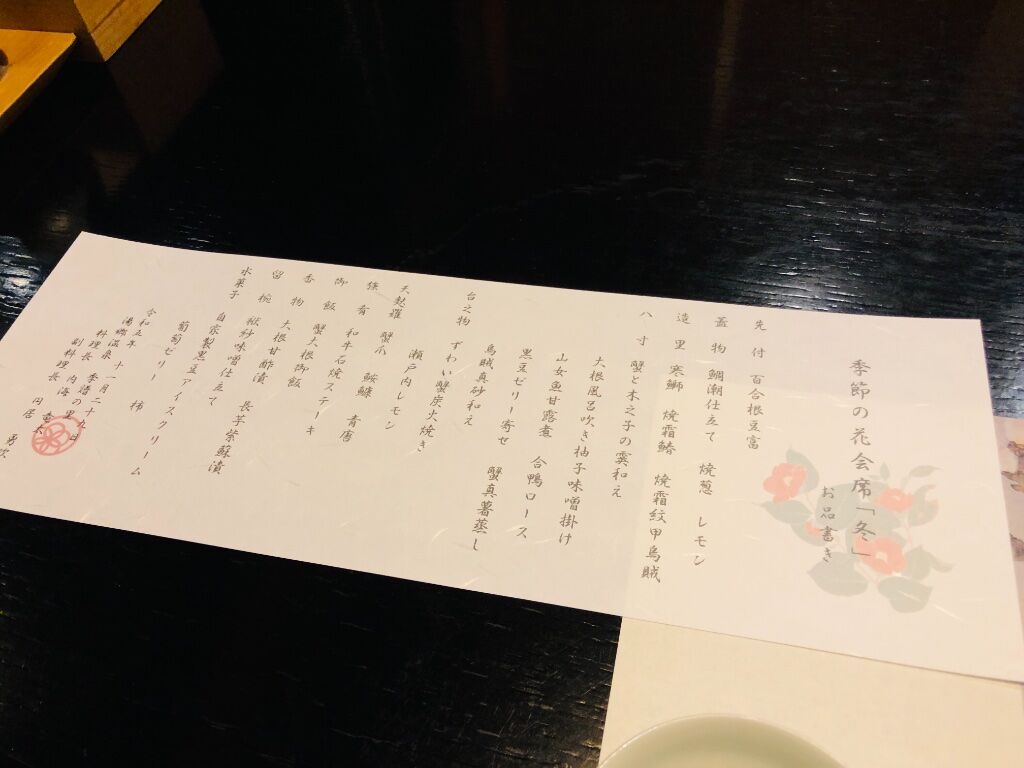 季節の花会席「冬」
お品書き
先 付 百合根豆富
蓋 物 鯛潮仕立て 焼葱 レモン
造 里 寒鰤 焼霜鰆 焼霜紋甲烏賊
八 寸 蟹と木之子の霙和え
大根風呂吹き柚子味噌掛け
山女魚甘露煮 合鴨ロース
黒豆ゼリー寄せ 蟹真薯蒸し
烏賊真砂和え
台之物 ずわい蟹炭火焼き
瀬戸内レモン
天麩羅 蟹爪 鮟鱇 青唐
強 肴 和牛石焼ステーキ
御 飯 蟹大根御飯
香 物 大根甘酢漬 長芋紫蘇漬
留 椀 秋秒味噌仕立て
水菓子 自家製黒豆アイスクリーム
葡萄ゼリー 柿
令和五年 十一月二十九日
湯郷温泉 季譜の里
料理長 内海
副料理長 勇次